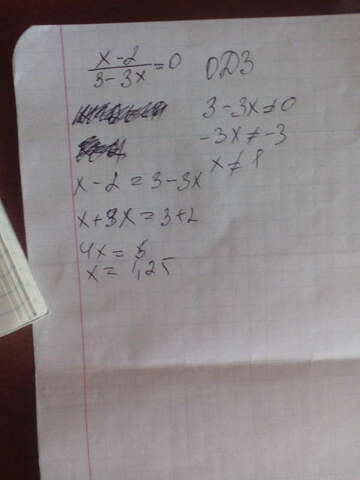 x-2/3-3x=0 ОДЗ
3-3x≠0
-3x≠-3
x≠1
x-2=3-3x
x+3x=3+2
4x=5
x=1,25